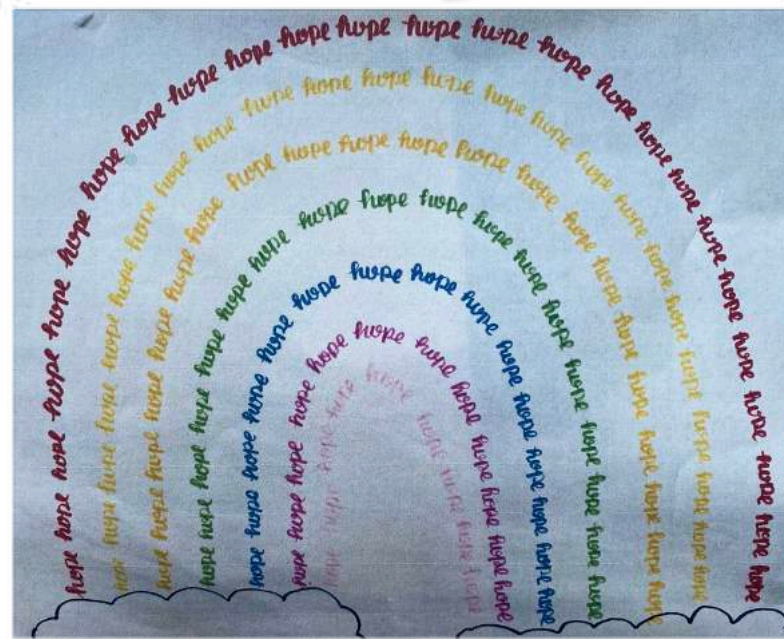 hope hope hope hope hope hope hope hope hope hope hope hope hope hope hope hope hope hope hope hope hope hope hope hope hope
hope hope hope hope hope hope hope hope hope hope hope hope hope hope hope hope hope hope hope hope hope hope hope hope
hope hope hope hope hope hope hope hope hope hope hope hope hope hope hope hope hope hope hope hope hope
hope hope hope hope hope hope hope hope hope hope hope hope hope hope hope hope hope hope
hope hope hope hope hope hope hope hope hope hope hope hope hope hope hope
hope hope hope hope hope hope hope hope hope hope hope hope hope
hope hope hope hope hope hope hope hope hope hope